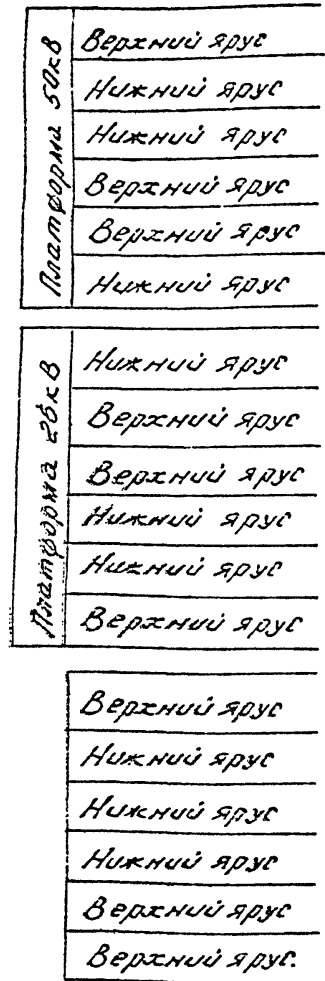 Платформа 50кВ
Верхний ярус
Нижний ярус
Нижний ярус
Верхний ярус
Верхний ярус
Нижний ярус
Платформа 25кВ
Нижний ярус
Верхний ярус
Верхний ярус
Нижний ярус
Нижний ярус
Верхний ярус
Верхний ярус
Нижний ярус
Нижний ярус
Нижний ярус
Верхний ярус
Верхний ярус.